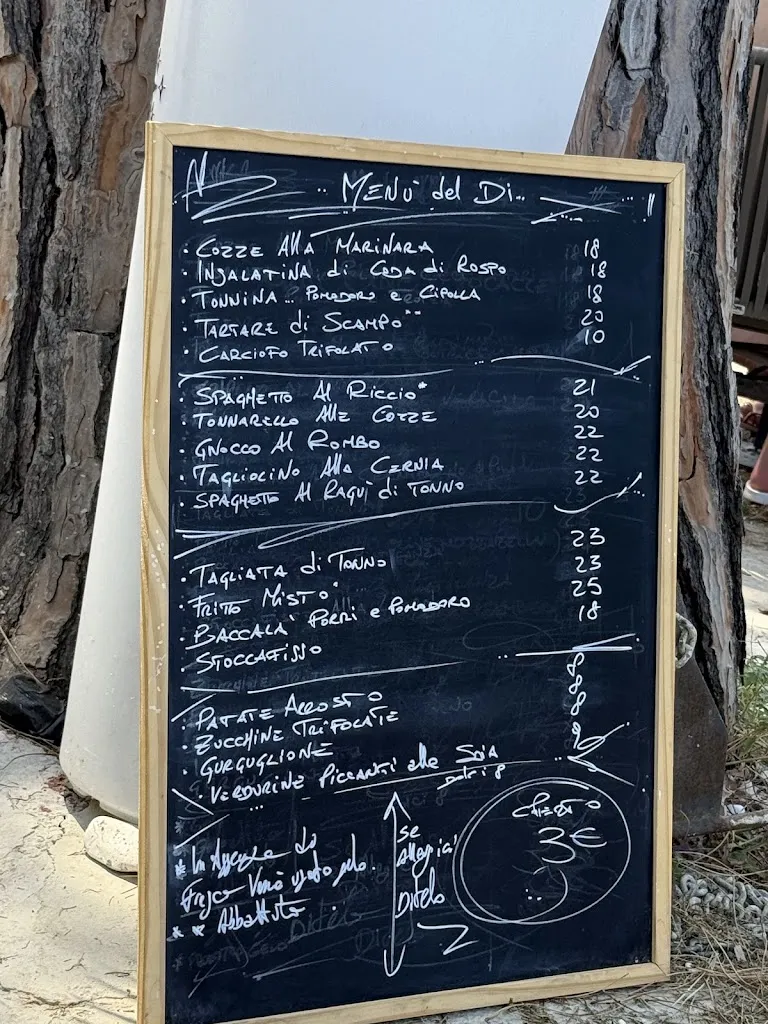 Menù del Dì..
· Cozze Alla Marinara 18
· Insalatina di Coda di Rospo 18
· Tonnina .. Pomodoro e Cipolla 18
· Tartare di Scampo** 20
· Carciofo Trifolato 10
· Spaghetto Al Riccio* 21
· Tonnarello Alle Cozze 20
· Gnocco Al Rombo 22
· Tagliolino Alla Cernia 22
· Spaghetto Al Ragù di Tonno 22
· Tagliata di Tonno 23
· Fritto Misto* 23
· Baccalà Porri e Pomodoro 25
· Stoccafisso 18
· Patate Arrosto 8
· Zucchine Trifolate 8
· Gurguglione 8
· Verdurine Piccanti alla Soia 8
* In Assenza di
Fresco Verrà usato
** Abbattuto
se
allergici
Ditelo
3€